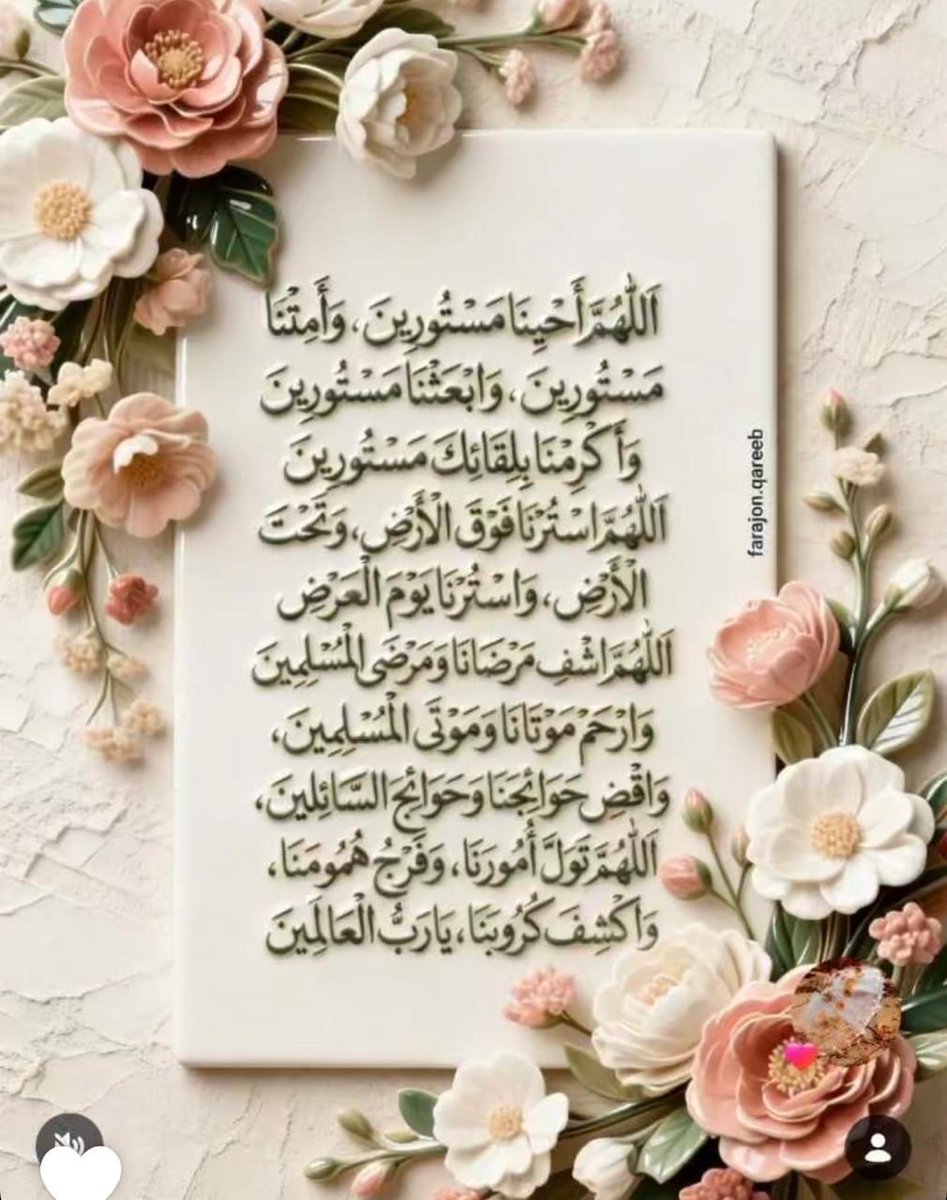 اَللّٰهُمَّ أَحْيِنَا مَسْتُورِينَ، وَأَمِتْنَا
مَسْتُورِينَ، وَابْعَثْنَا مَسْتُورِينَ
وَأَكْرِمْنَا بِلِقَائِكَ مَسْتُورِينَ
اَللّٰهُمَّ اسْتُرْنَا فَوْقَ الْأَرْضِ، وَتَحْتَ
الْأَرْضِ، وَاسْتُرْنَا يَوْمَ الْعَرْضِ
اَللّٰهُمَّ اشْفِ مَرْضَانَا وَمَرْضَى الْمُسْلِمِينَ
وَارْحَمْ مَوْتَانَا وَمَوْتَى الْمُسْلِمِينَ،
وَاقْضِ حَوَائِجَنَا وَحَوَائِجَ السَّائِلِينَ،
اَللّٰهُمَّ تَوَلَّ أُمُورَنَا، وَفَرِّجْ هُمُومَنَا،
وَاكْشِفَ كُرُوبَنَا، يَا رَبُّ الْعَالَمِينَ
farajon.qareeb